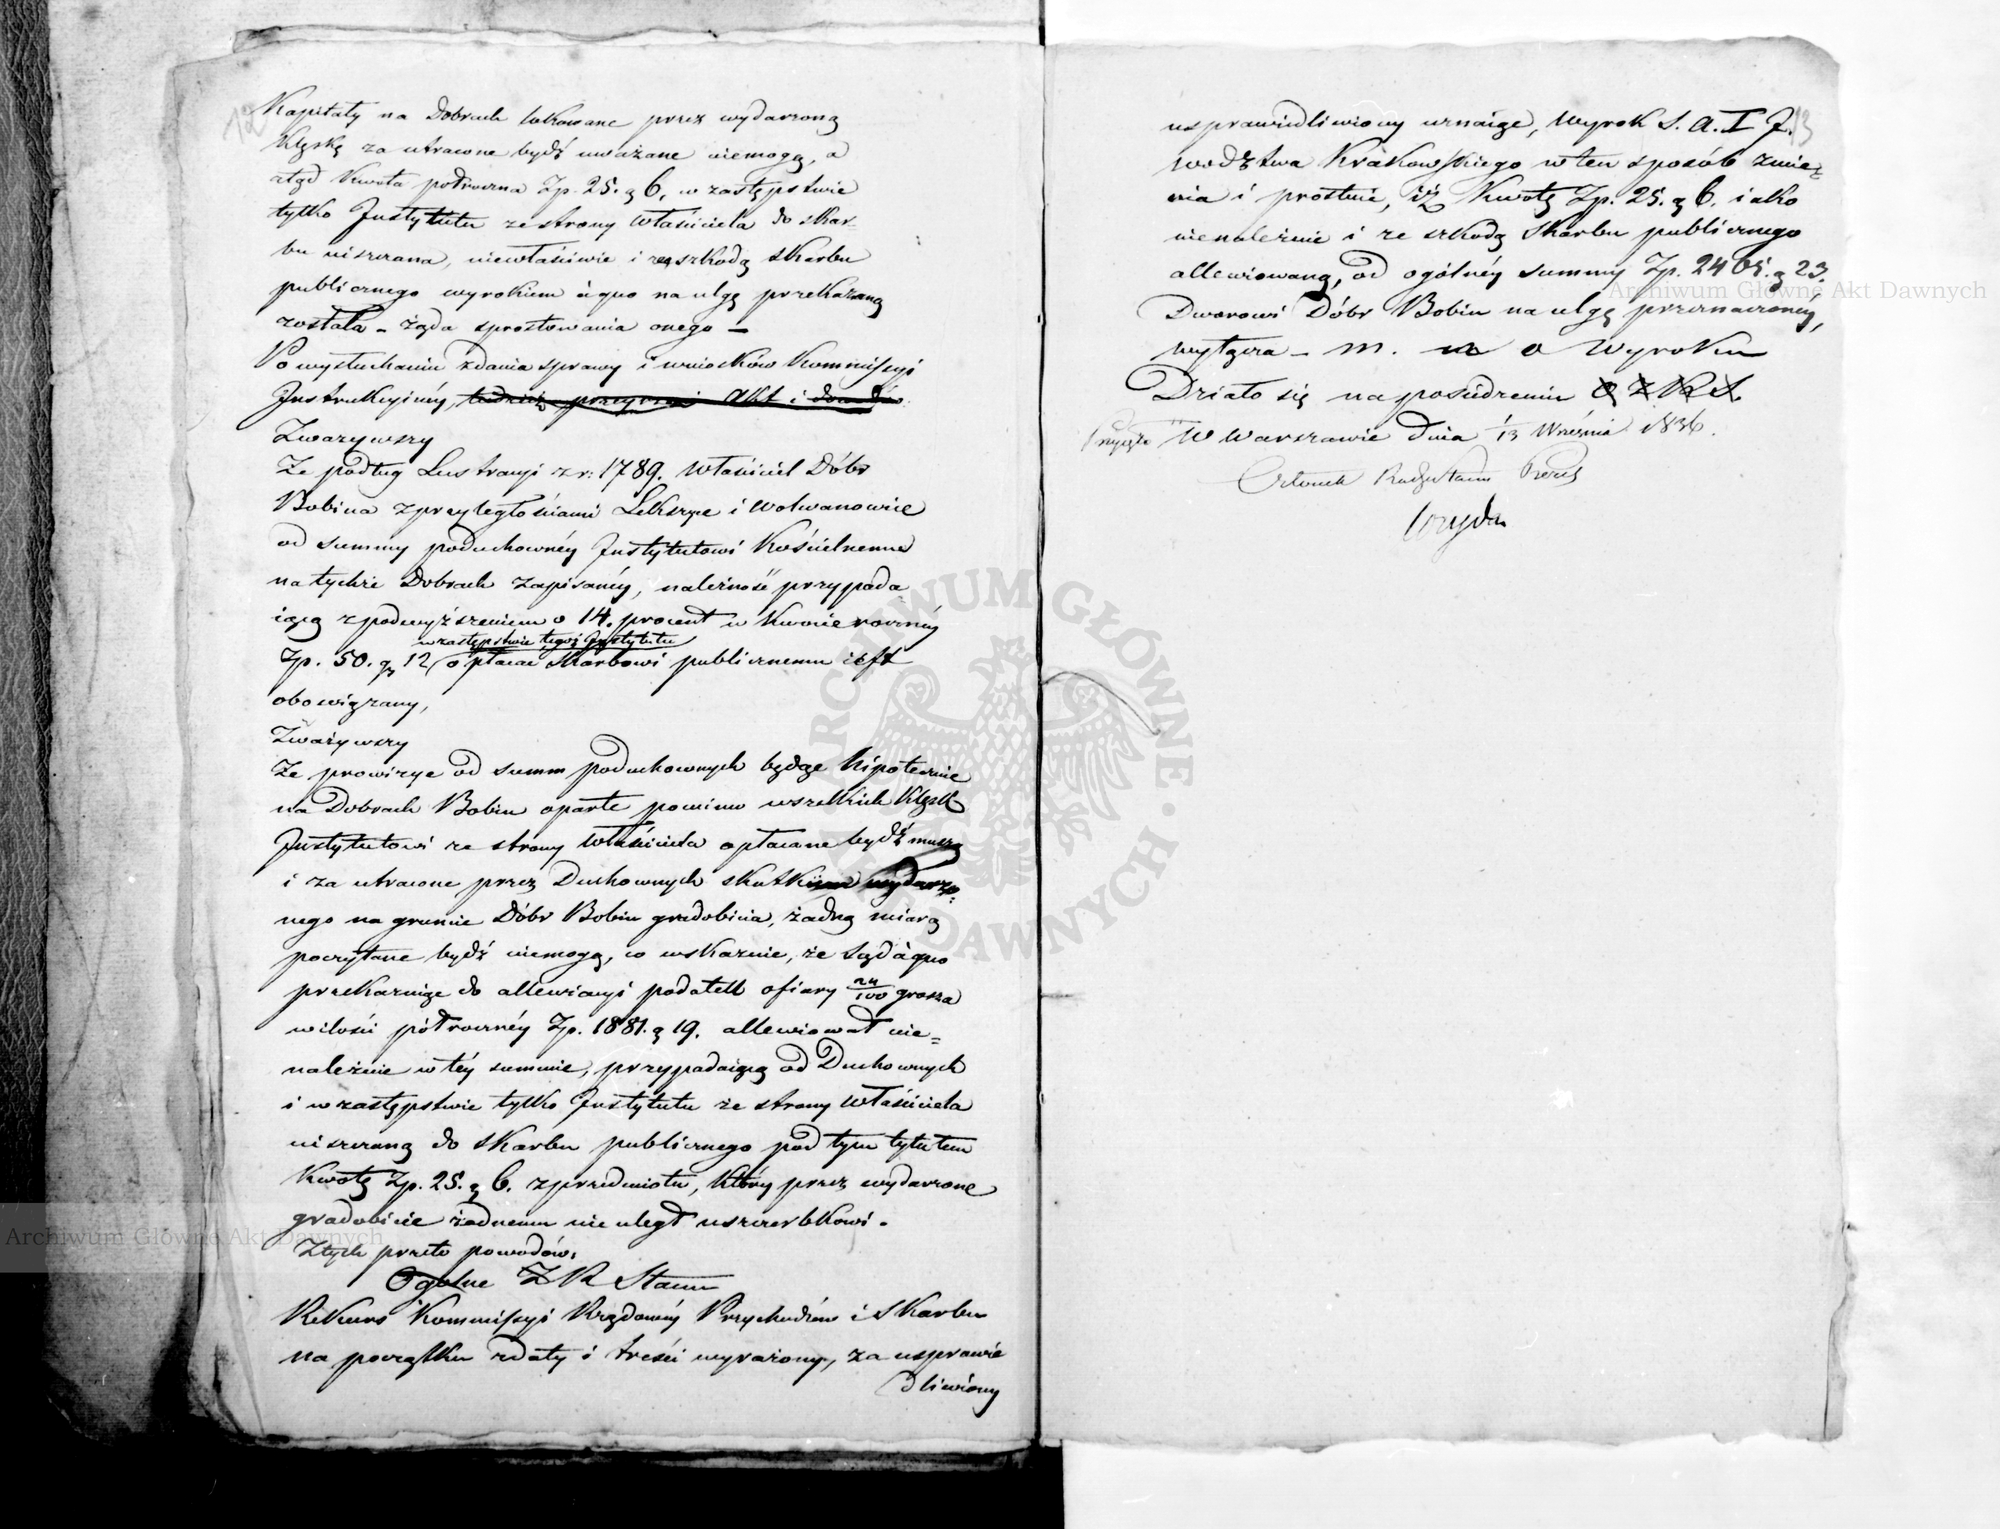 12
Kapitały na Dobrach lokowane przez wydarzoną
Klęskę za utracone bydź uważane niemogą, a
ztąd Kwota półroczna Zp. 25. g 6. w zastępstwie
tylko Instytutu ze strony Właściciela do skar-
bu uiszczana, niewłaściwie i ze szkodą skarbu
publicznego wyrokiem à quo na ulgę przekazaną
została – żąda sprostowania onego –
Po wysłuchaniu zdania sprawy i wniosków Kommissyi
Instrukcyinéy, tudzież przeyrzeniu Akt i dowodów
Zważywszy
Że podług Lustracyi z r: 1789. Właściciel Dóbr
Bobina z przyległościami Lekszyce i Wolwanowice
od summy poduchownéy Instytutowi Kościelnemu
na tychże Dobrach zapisanéy, należność przypada
iącą z podwyższeniem o 14. procent w Kwocie rocznéy
w zastępstwie tegoż Instytutu
Zp. 50. gr 12 opłacać Skarbowi publicznemu iest
obowiązany,
Zważywszy
Że prowizye od summ poduchownych będąc hipotecznie
na Dobrach Bobin oparte pomimo wszelkich Klęsk
Instytutowi ze strony Właściciela opłacane bydź muszą
i za utracone przez Duchownych skutkiem wydarzo=
nego na gruncie Dóbr Bobin gradobicia, żadną miarą
poczytane bydź niemogą, co wskazuie, że Sąd à quo
przekazuiąc do allewiacyi podatek ofiary 24/100 grosza
w ilości półrocznéy Zp. 1881. g 19. allewiował nie=
należnie w téy summie, przypadaiącą od Duchownych
i w zastępstwie tylko Instytutu ze strony Właściciela
uiszczaną do skarbu publicznego pod tym tytułem
Kwotę Zp. 25. g 6. z przedmiotu, który przez wydarzone
gradobicie żadnemu nie uległ uszczerbkowi.
Z tych przeto powodów,
Ogólne Z R Stanu
Rekurs Kommissyi Rządowéy Przychodów i Skarbu
na początku z daty i treści wyrażony, za usprawie
dliwiony
13
usprawiedliwiony uznaiąc, Wyrok S. A. I J.
wodztwa Krakowskiego w ten sposób zmie=
nia i prostuie, iż Kwotę Zp. 25. g 6. iako
nienależnie i ze szkodą Skarbu publicznego
allewiowaną, od ogólnéy summy Zp. 2465. g 23.
Dworowi Dóbr Bobin na ulgę przeznaczonéy,
wyłącza – m. o Wyroku
Działo się na posiedzeniu O Z R S.
w Warszawie dnia 1/13 Września 1836.
Członek Rady Stanu
Archiwum Główne Akt Dawnych
Archiwum Główne Akt Dawnych
ARCHIWUM GŁÓWNE · AKT DAWNYCH ·